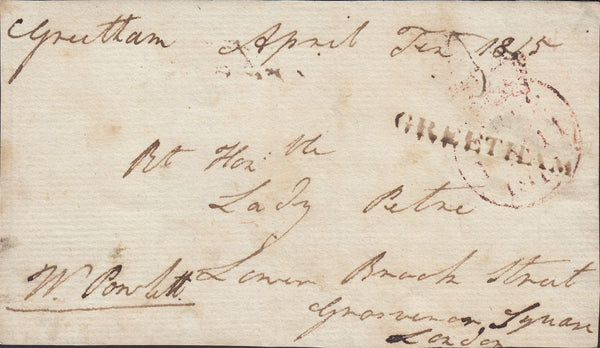 Greetham April Ten 1815
GREETHAM
Rt Hon:ble
Lady Petre
Lower Brook Street
Wm Powlett
Grosvenor Square
London